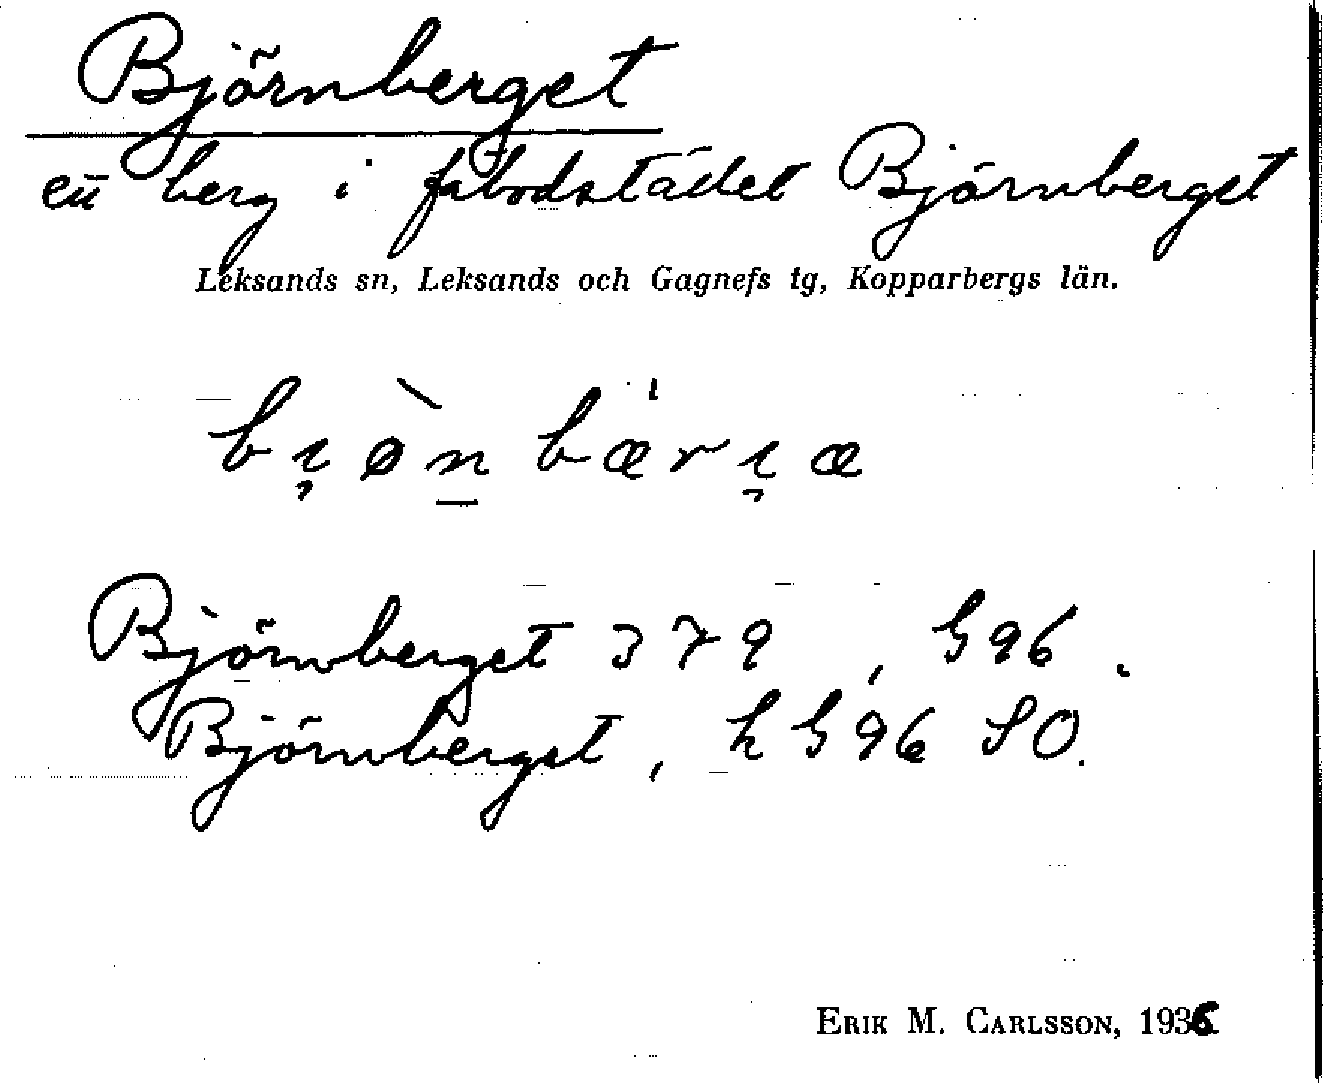 Björnberget
ett berg i fäbodstället Björnberget
Leksands sn, Leksands och Gagnefs tg, Kopparbergs län.
bi̯ø̀n̠bær'i̯æ
Björnberget 379, G96.
Björnberget, h G96 SO.
ERIK M. CARLSSON, 1936